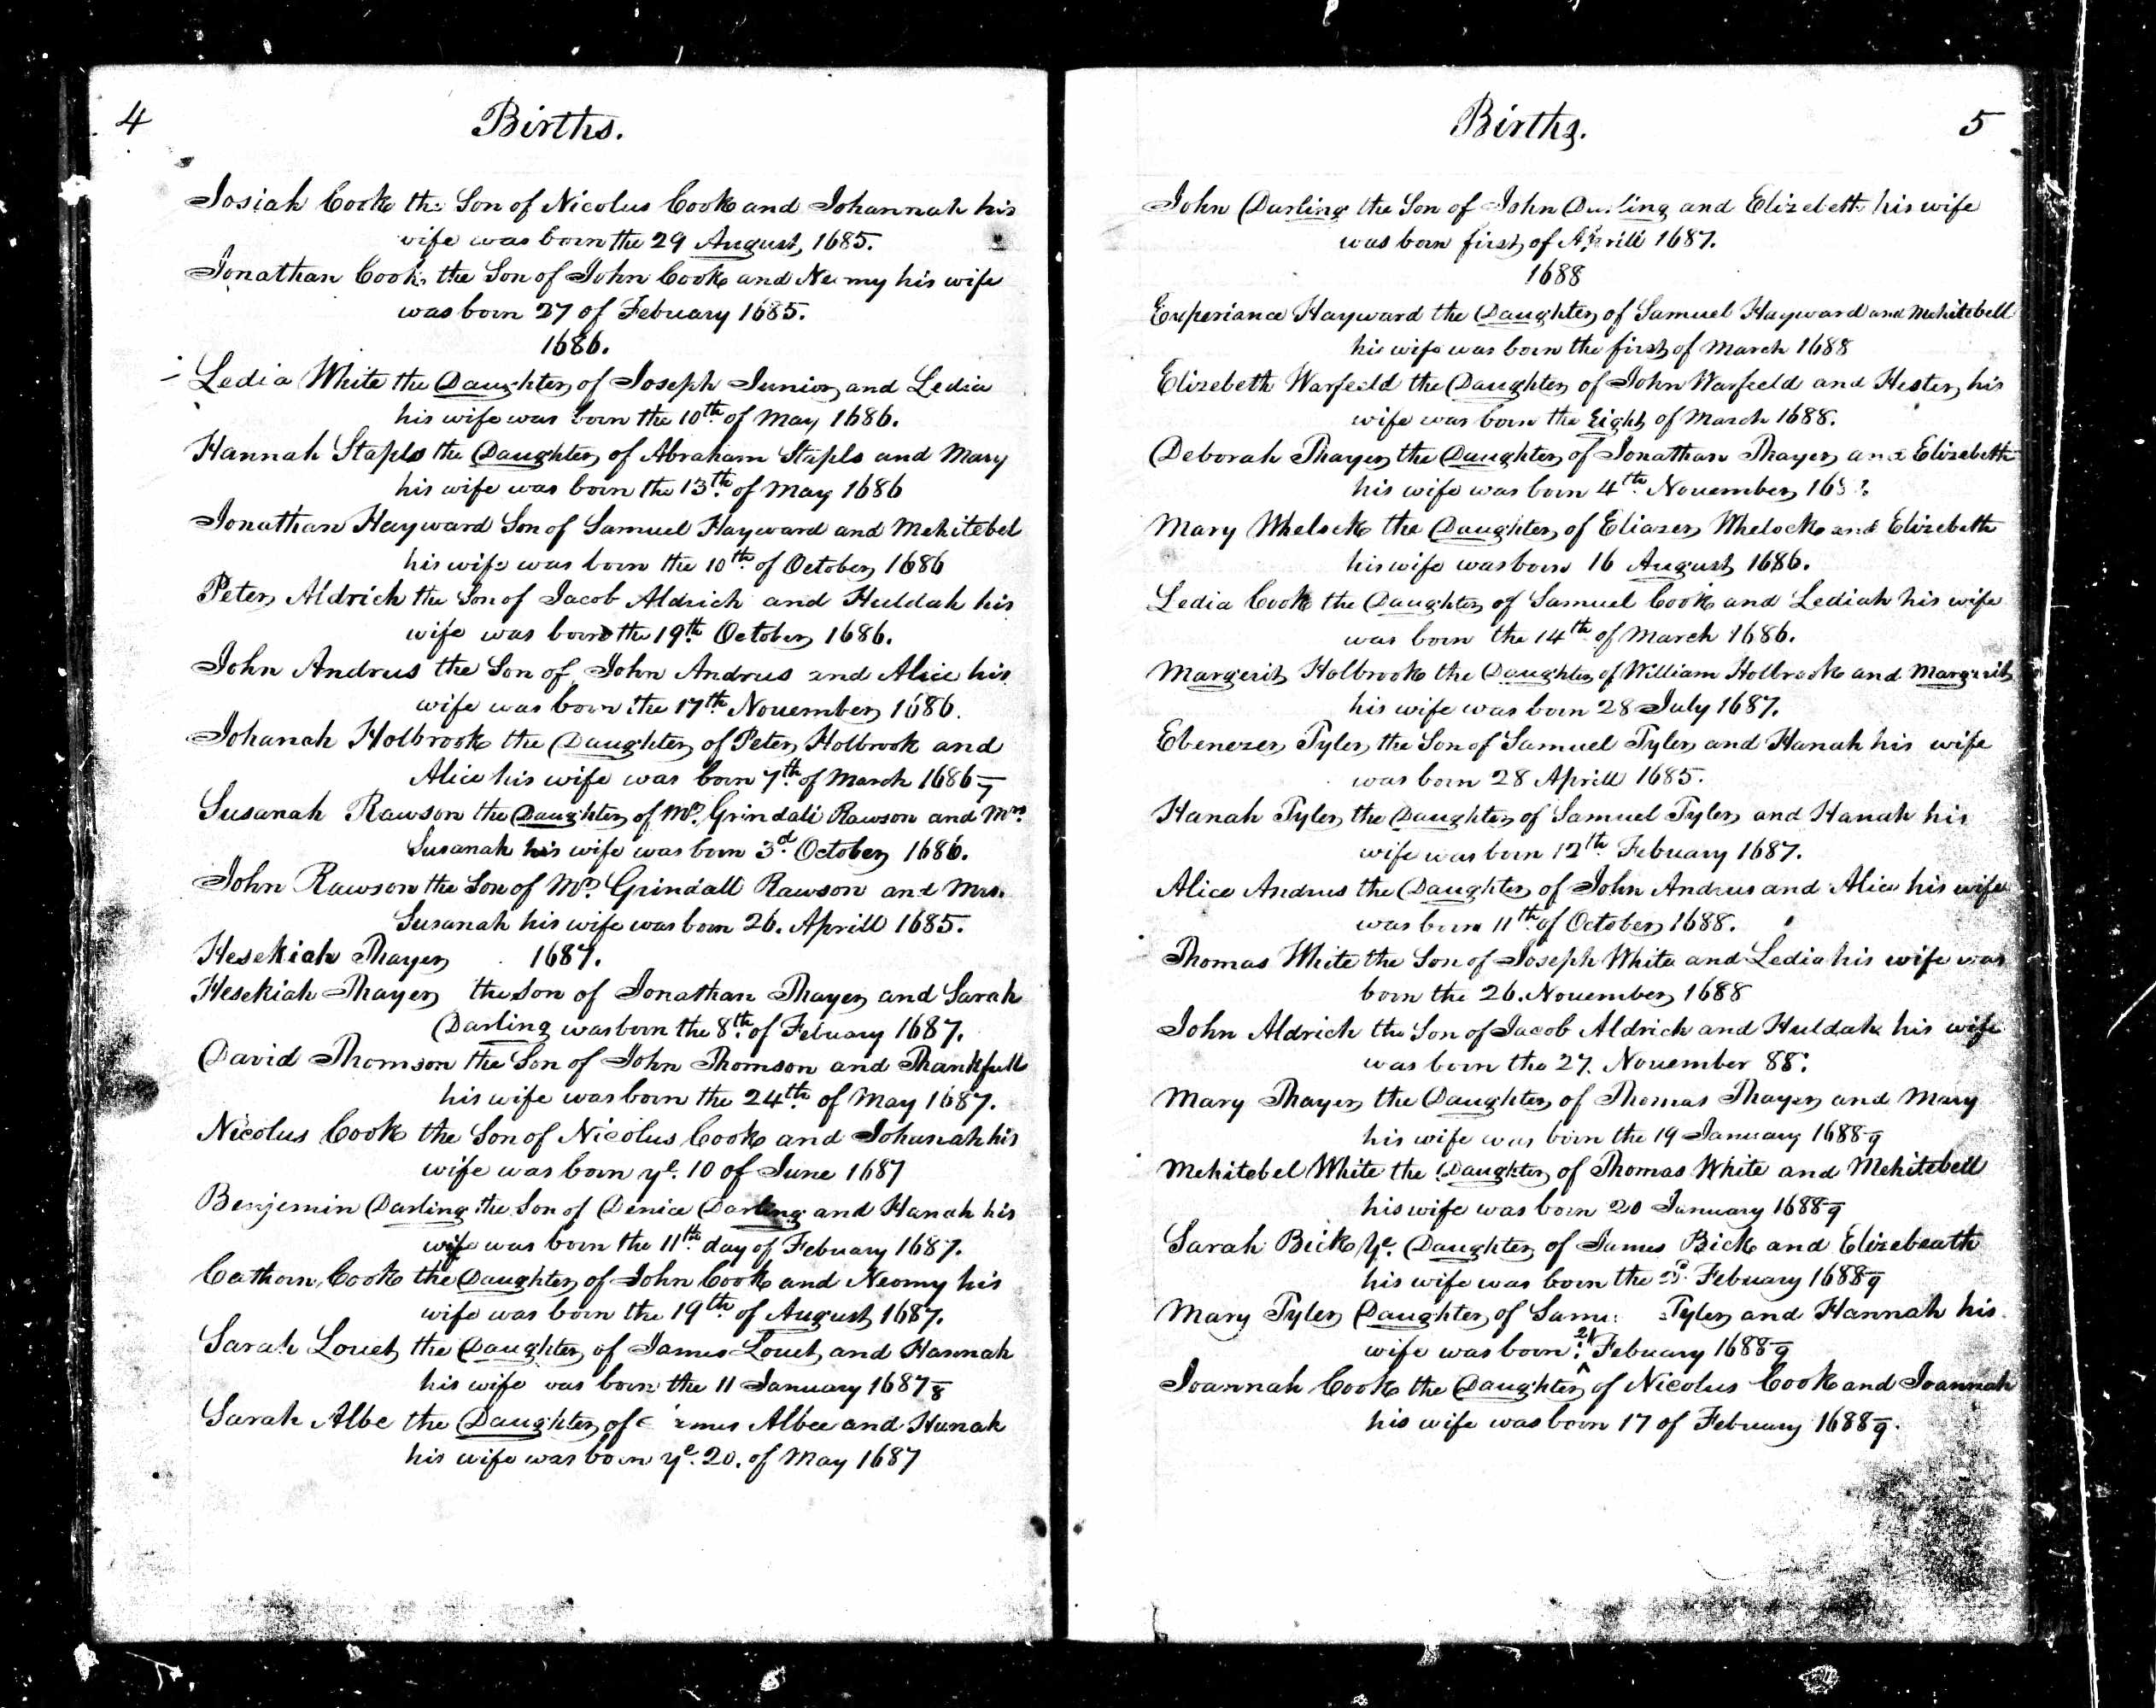 4
Births.
Josiah Cook the Son of Nicolus Cook and Johannah his
wife was born the 29 August, 1685.
Jonathan Cook the Son of John Cook and Neomy his wife
was born 27 of Febuary 1685.
1686.
Ledia White the Daughter of Joseph Junior and Ledia
his wife was born the 10th of May 1686.
Hannah Stapls the Daughter of Abraham Stapls and Mary
his wife was born the 13th of May 1686
Jonathan Hayward Son of Samuel Hayward and Mehitebel
his wife was born the 10th of October 1686
Peter Aldrich the Son of Jacob Aldrich and Huldah his
wife was born the 19th October 1686.
John Andrus the Son of John Andrus and Alice his
wife was born the 17th November 1686.
Johanah Holbrook the Daughter of Peter Holbrook and
Alice his wife was born 7th of March 1686/7
Susanah Rawson the Daughter of Mr. Grindall Rawson and Mrs.
Susanah his wife was born 3d October 1686.
John Rawson the Son of Mr. Grindall Rawson and Mrs.
Susanah his wife was born 26. Aprill 1685.
Hesekiah Thayer 1687.
Hesekiah Thayer the Son of Jonathan Thayer and Sarah
Darling was born the 8th of Febuary 1687.
David Thomson the Son of John Thomson and Thankfull
his wife was born the 24th of May 1687.
Nicolus Cook the Son of Nicolus Cook and Johanah his
wife was born ye. 10 of June 1687
Benjemin Darling the Son of Denice Darling and Hanah his
wife was born the 11th day of Febuary 1687.
Cathorn Cook the Daughter of John Cook and Neomy his
wife was born the 19th of August 1687.
Sarah Louet the Daughter of James Louet and Hannah
his wife was born the 11 January 1687/8
Sarah Albe the Daughter of Albee and Hanah
his wife was born ye. 20. of May 1687
Births.
5
John Darling the Son of John Darling and Elizebeth his wife
was born first of Aprill 1687.
1688
Experiance Hayward the Daughter of Samuel Hayward and Mehitebell
his wife was born the first of March 1688
Elizebeth Warfeeld the Daughter of John Warfeeld and Hester his
wife was born the Eight of March 1688.
Deborah Thayer the Daughter of Jonathan Thayer and Elizebeth
his wife was born 4th November
Mary Whelock the Daughter of Eliazer Whelock and Elizebeth
his wife was born 16 August 1686.
Ledia Cook the Daughter of Samuel Cook and Lediah his wife
was born the 14th of March 1686.
Margerit Holbrook the Daughter of William Holbrook and Margerit
his wife was born 28 July 1687.
Ebenezer Tyler the Son of Samuel Tyler and Hanah his wife
was born 28 Aprill 1685.
Hanah Tyler the Daughter of Samuel Tyler and Hanah his
wife was born 12th Febuary 1687.
Alice Andrus the Daughter of John Andrus and Alice his wife
was born 11th of October 1688.
Thomas White the Son of Joseph White and Ledia his wife was
born the 26. November 1688
John Aldrich the Son of Jacob Aldrich and Huldah his wife
was born the 27. November 88:
Mary Thayer the Daughter of Thomas Thayer and Mary
his wife was born the 19 January 1688/9
Mehitebel White the Daughter of Thomas White and Mehitebell
his wife was born 20 January 1688/9
Sarah Bick ye. Daughter of James Bick and Elizebeath
his wife was born the Febuary 1688/9
Mary Tyler Daughter of Tyler and Hannah his
wife was born 21 Febuary 1688/9
Joannah Cook the Daughter of Nicolus Cook and Joannah
his wife was born 17 of February 1688/9.